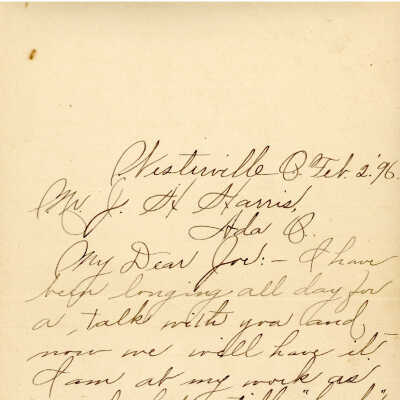 Westerville O. Feb. 2. '96.
Mr. J. H Harris,
Ada O.
My Dear Joe:- I have
been longing all day for
a talk with you and
now we will have it.
I am at my work as